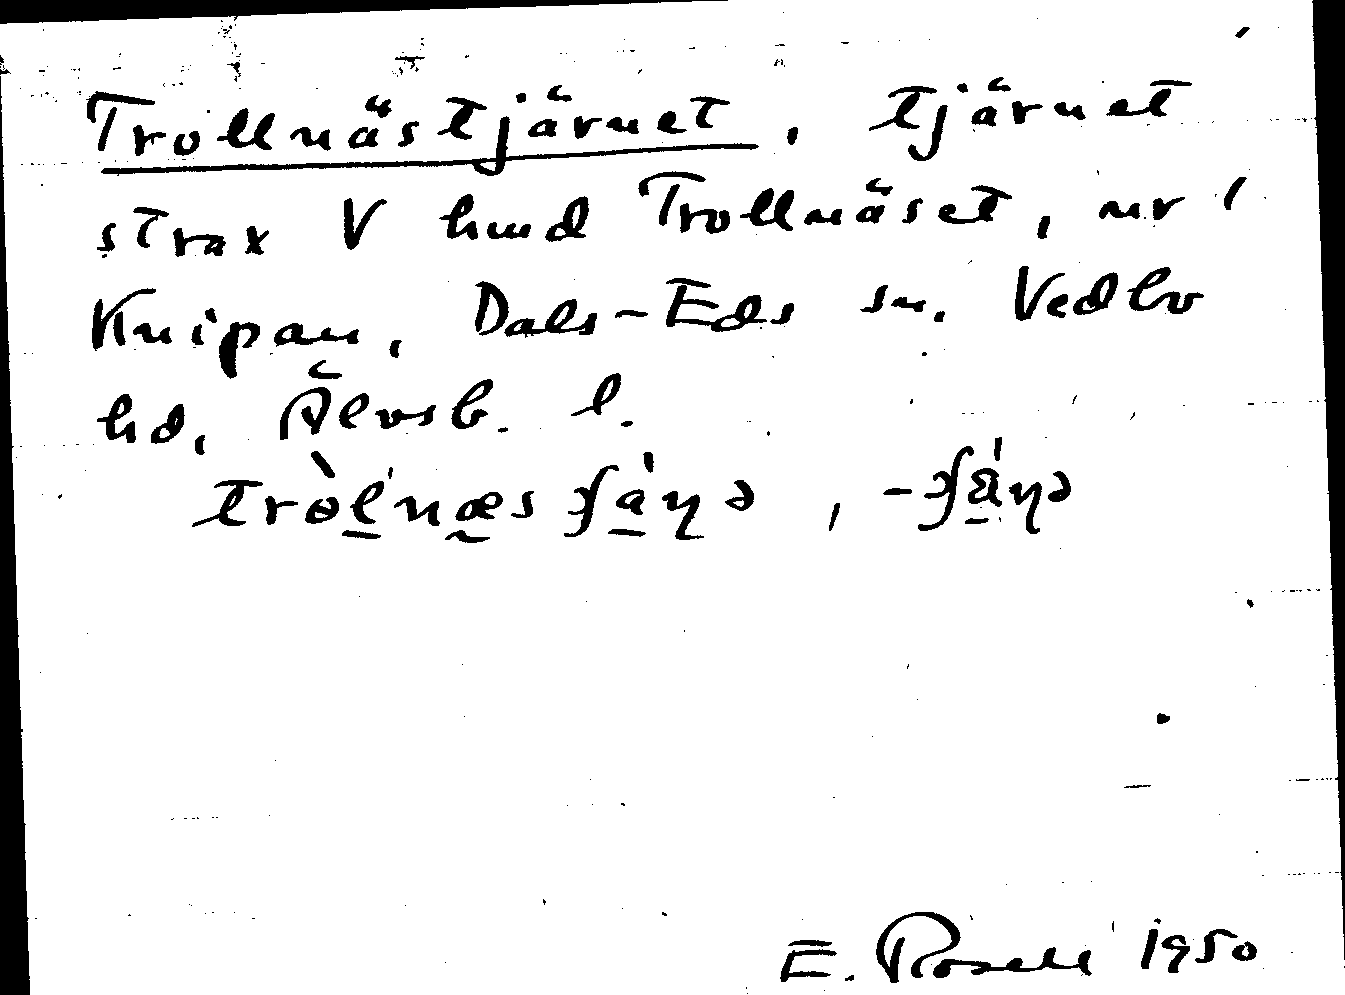 Trollnästjärnet, tjärnet
strax V hmd Trollnäset, nr 1
Knipan, Dals-Eds sn. Vedbo
hd, Älvsb. l.
E. Rosell 1950